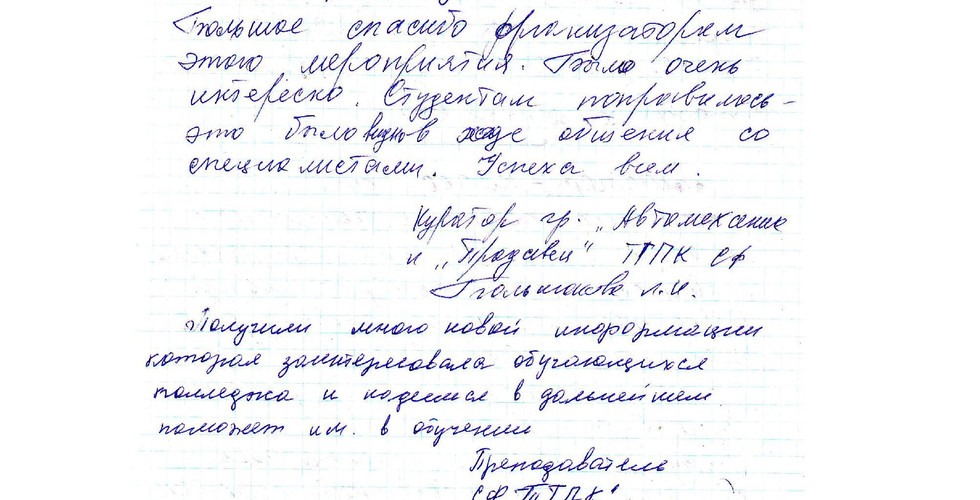 Большое спасибо организаторам
этого мероприятия. Было очень
интересно. Студентам понравилось -
это было видно в ходе общения со
специалистами. Успеха всем.
Куратор гр. „Автомеханик
и „Продавец" ТППК СФ
Большакова Л.И.
Получили много новой информации
которая заинтересовала обучающихся
колледжа и надеемся в дальнейшем
поможет им в обучении
Преподаватель
СФ "ТППК"